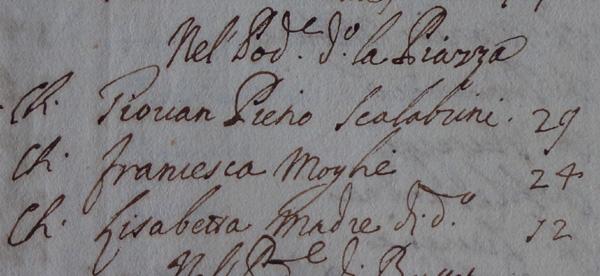 Nel Pod.e d.o la Piazza
Ch. Giovan Pietro Scalabrini. 29
Ch. Francesca Moghe 24
Ch. Lisabetta Madre di d.o 52
Nel P.e di